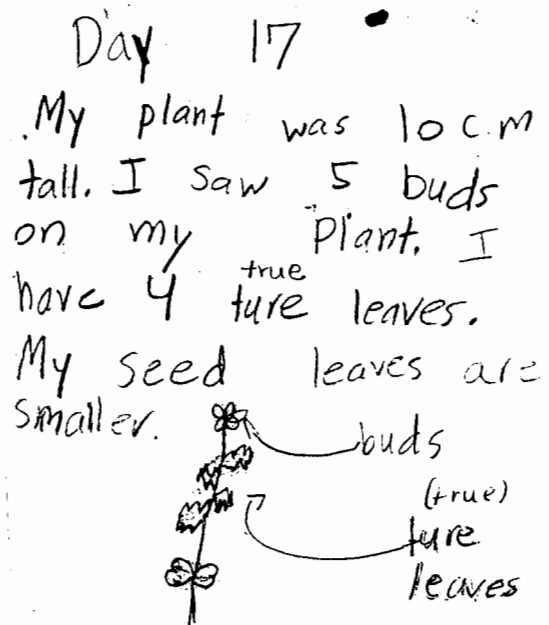 Day 17
My plant was 10 c.m
tall. I saw 5 buds
on my plant. I
true
have 4 ture leaves.
My seed leaves are
smaller.
buds
(true)
ture
leaves